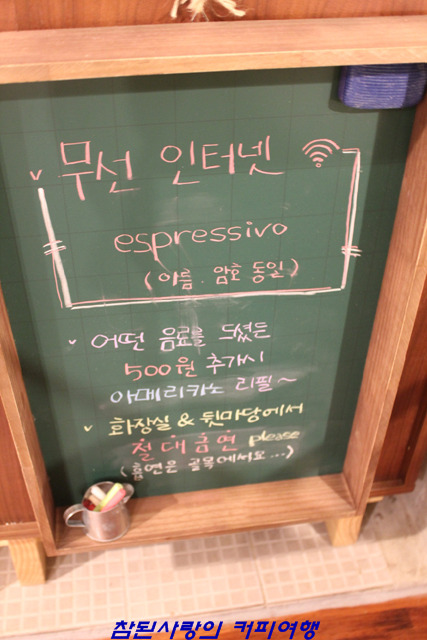 v 무선 인터넷
espressivo
(이름. 암호 동일)
v 어떤 음료를 드셨든
500원 추가시
아메리카노 리필~
v 화장실 & 뒷마당에서
절대흡연 please
(흡연은 골목에서요...)
참된사랑의 커피여행